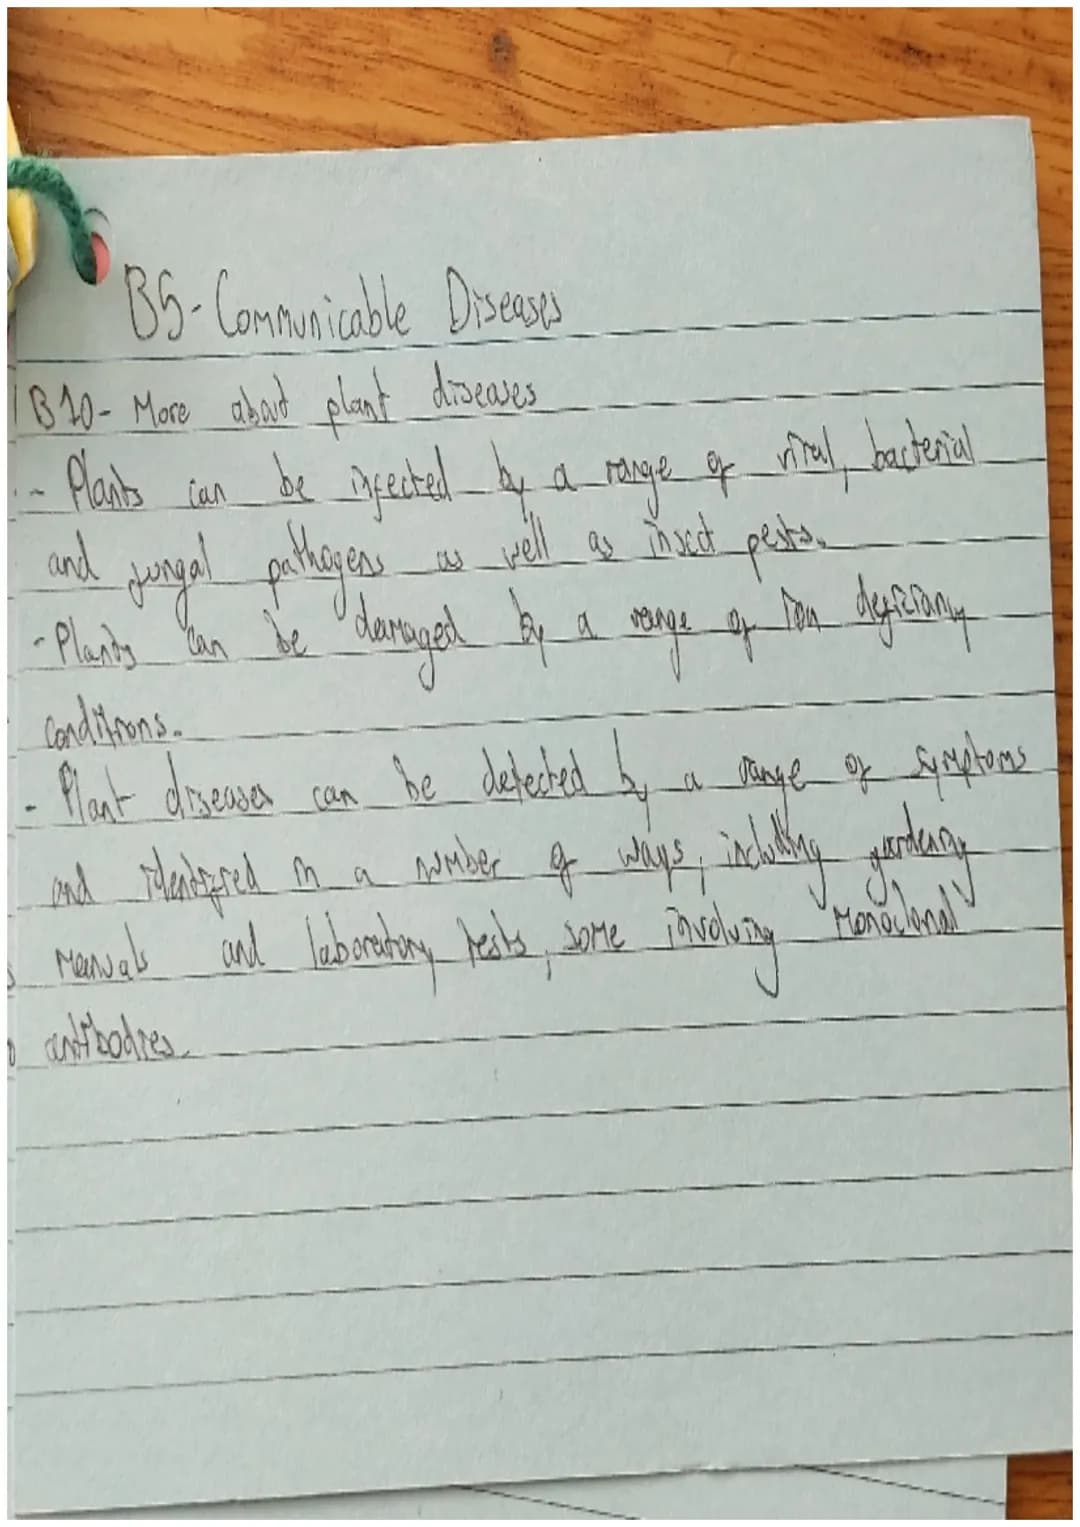 B5-Communicable Diseases
B10- More about plant diseases
- Plants can be infected by a range of viral, bacterial
and fungal pathogens as well as insect pests.
- Plants can be damaged by a range of ion deficiany
conditions.
- Plant diseases can be detected by a range of symptoms
and identified in a number of ways, including gardening
manuals and laboratory tests, some involving monoclonal
antibodies.